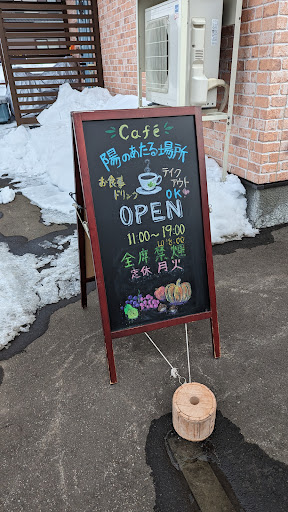 Café
陽のあたる場所
お食事
ドリンク
テイク
アウト
OK
OPEN
11:00～19:00
全席禁煙
定休 月火